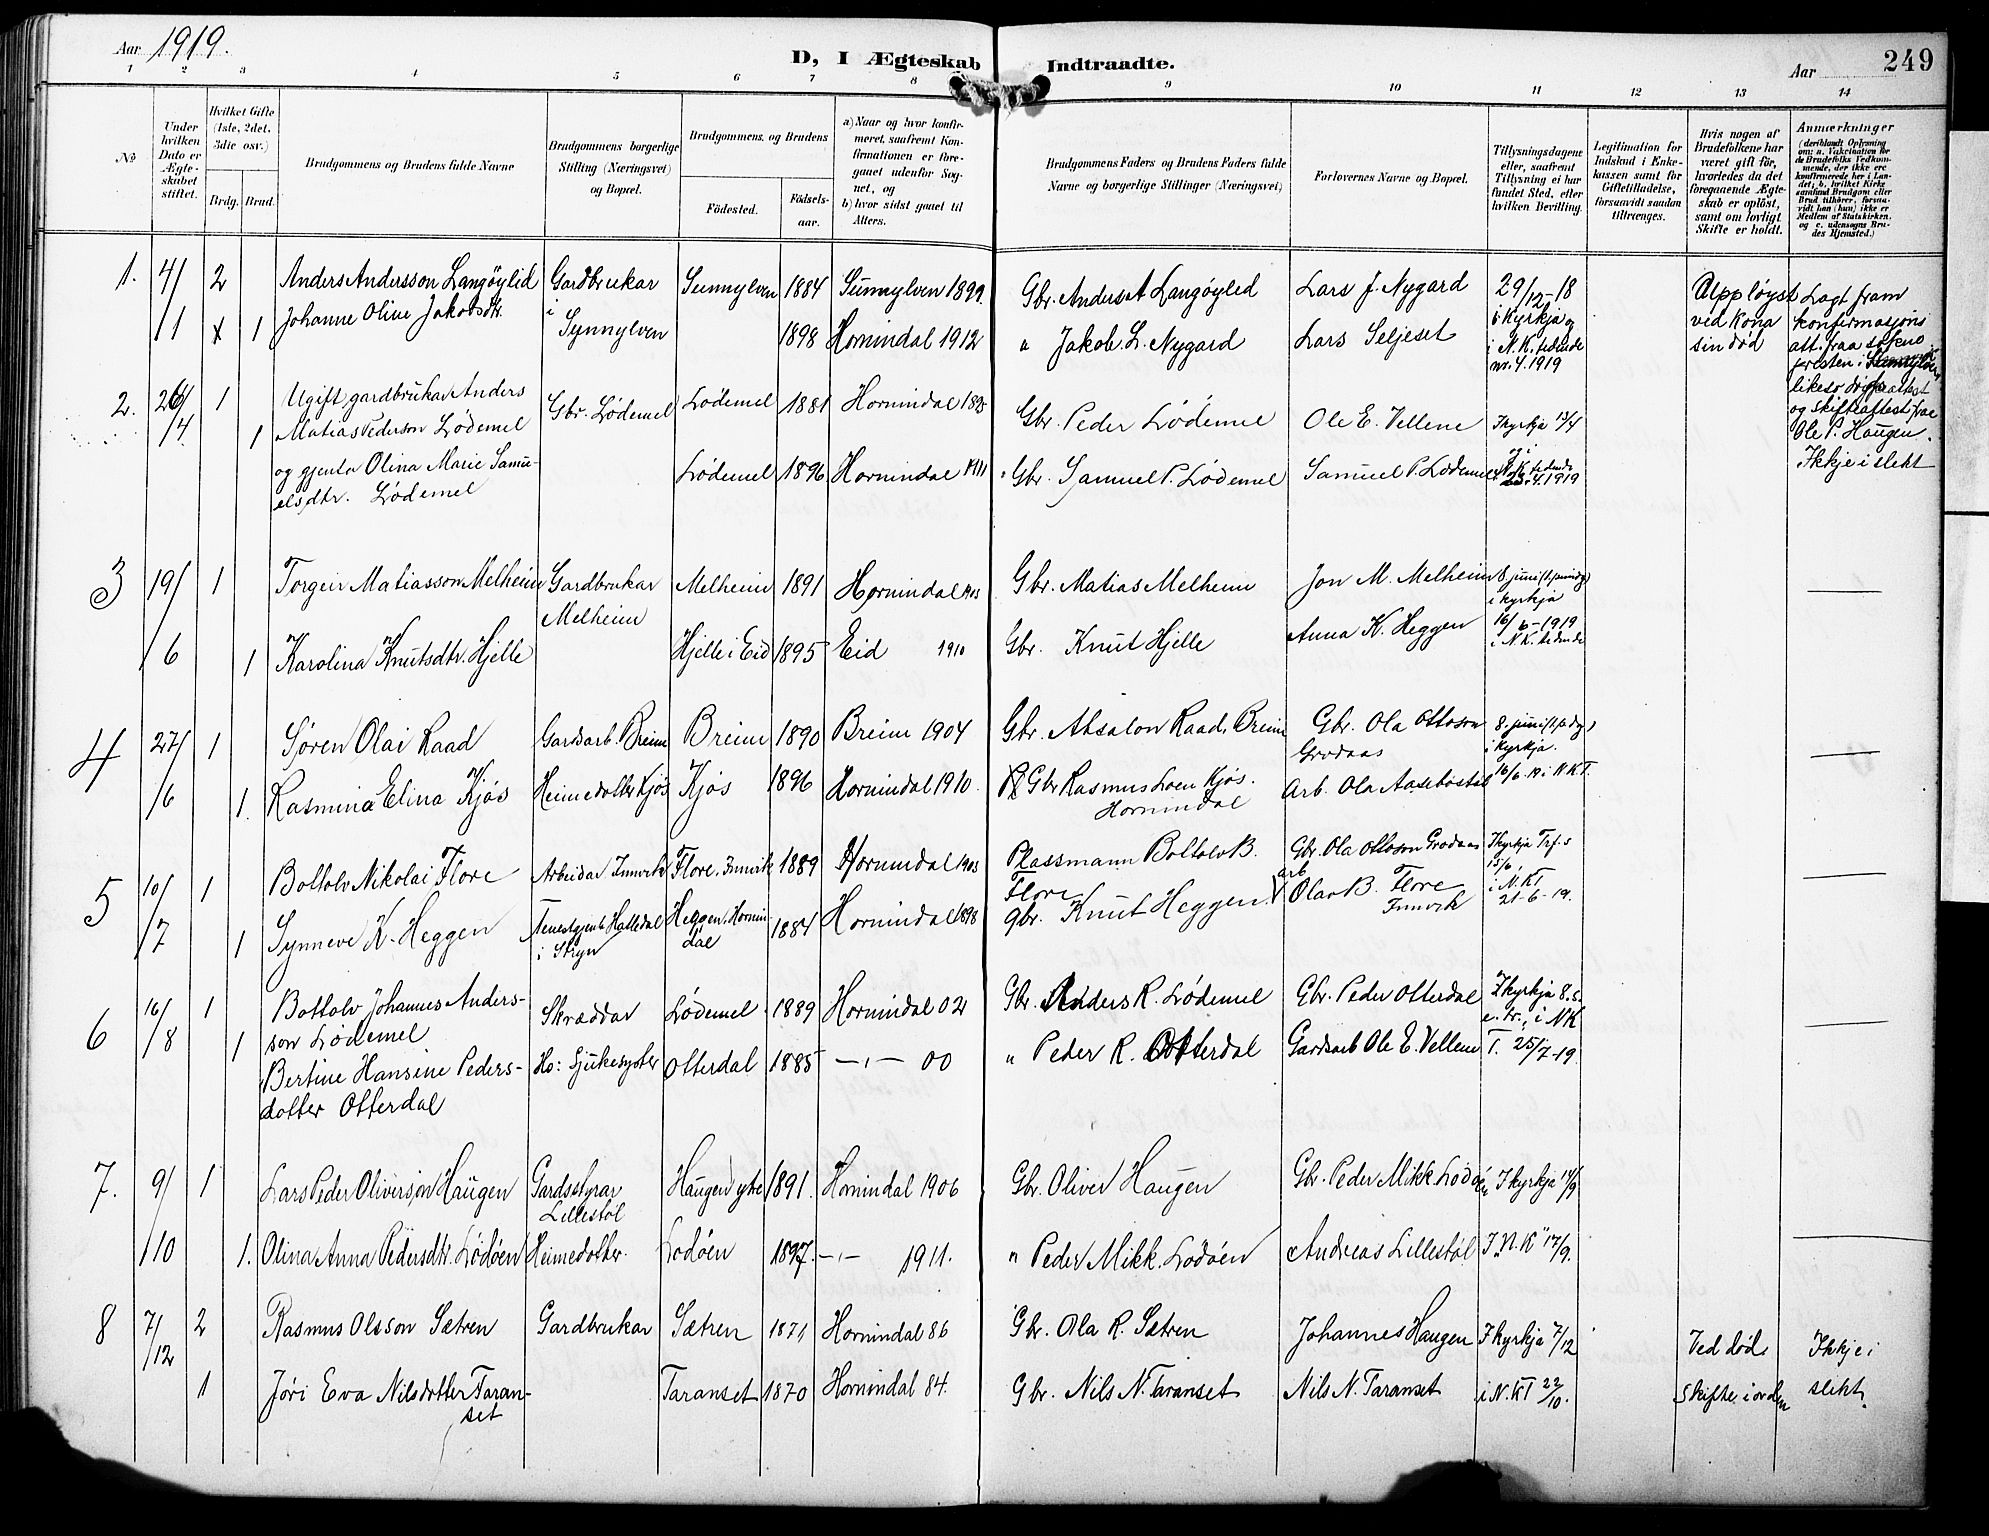 Aar 1919.
D, I Ægteskab Indtraadte.
Aar 249
1 2 3 4 5 6 7 8 9 10 11 12 13 14
No
Under hvilken Dato er Ægteskabet stiftet.
Hvilket Gifte (1ste, 2det, 3die osv.)
Brdg. Brud.
Brudgommens og Brudens fulde Navne
Brudgommens borgerlige Stilling (Næringsvei) og Bopæl.
Brudgommens. og Brudens
Fødested. Fødselsaar.
a) Naar og hvor konfirmeret, saafremt Konfirmationen er foregaaet udenfor Sognet, og
b) hvor sidst gaaet til Alters.
Brudgommens Faders og Brudens Faders fulde Navne og borgerlige Stillinger (Næringsvei)
Forlovernes Navne og Bopæl.
Tillysningsdagene eller, saafremt Tillysning ei har fundet Sted, efter hvilken Bevilling.
Legitimation for Indskud i Enkekassen samt for Giftetilladelse, forsaavidt saadan tiltrænges.
Hvis nogen af Brudefolkene har været gift før, hvorledes da det foregaaende Ægteskab er opløst, samt om lovligt Skifte er holdt.
Anmærkninger (deriblandt Oplysning om: a. Vakcination for de Brudefolks Vedkommende, der ikke ere konfirmerede her i Landet; b. hvilket Kirkesamfund Brudgom eller Brud tilhører, forsaavidt han (hun) ikke er Medlem af Statskirken, og c. udensogns Brudes Hjemsted.)
1. 4/1 2 Anders Andersson Langøylid Gardbrukar i Synnylven Sunnylven 1884 Sunnylven 1899. Gbr. Anders A Langøylid Lars J. Nygard 29/12-18 i Kyrkja og i N.K. tidende nr. 4. 1919 Uppløyst ved Kona sin død
Lagt fram konfirmasjons att. fraa soknepresten i Sunnylven, likeso og skifteattest frae Ole P. Haugen. Ikkje i slekt
x 1 Johanne Oline Jakobsdtr. 1898 Hornindal 1912 " Jakob L. Nygard Lars Seljeset
2. 26/4 1 Ugift gardbrukar Anders Matias Pederson Lødemel Gbr. Lødemel Lødemel 1881 Hornindal 1895 Gbr. Peder Lødemel Ole E. Vellene I kyrkja 13/4 og i N.K. tidende 23.4.1919
1 og gjenta Olina Marie Samuelsdtr. Lødemel Lødemel 1896 Hornindal 1911 Gbr. Samuel P. Lødemel Samuel P. Lødemel
3 19/6 1 Torgeir Matiasson Melheim Gardbrukar Melheim Melheim 1891 Hornindal 1905 Gbr. Matias Melheim Jon M. Melheim 8 juni (1. pinsdg) i kyrkja 16/6-1919 i N.K. tidende
1 Karolina Knutsdtr. Hjelle Hjelle i Eid 1895 Eid 1910 Gbr. Knut Hjelle Anna K. Heggen
4 27/6 1 Søren Olai Raad Gardsarb. Breim Breim 1890 Breim 1904 Gbr. Absalon Raad, Breim Gbr. Ola Ottoson Grodaas 8. juni (1. p.dg.) i kyrkja. 16/6-19 i N K T.
1. Rasmina Elina Kjøs Heimedotter Kjøs Kjøs 1896 Hornindal 1910. Gbr Rasmus Loen Kjøs. Hornindal Arb. Ola Aasebøstøl
5 10/7 1 Boltolv Nikolai Flore Arbeidar Innvik Flore, Innvik 1889 Hornindal 1905 Plassmann Boltolv B. Flore Gbr. Ola Ottoson Grodaas I kyrkja Trf. s 15/6 i N. KT 21-6-19.
1 Synneve K. Heggen Tenestgjenta Halledal i Stryn Heggen, Hornindal 1884 Hornindal 1898 gbr. Knut Heggen. arb Olav B. Flore Innvik
6 16/8 1 Bottolv Johannes Andersson Lødemel Skræddar Lødemel 1889 Hornindal 02 Gbr. Anders R. Lødemel Gbr. Peder Otterdal I kyrkja 8. s. e. tr., i N K T. 25/7-19.
1 Bertine Hansine Pedersdotter Otterdal Ho: Sjukesyster Otterdal 1885 –„– 00 " Peder R. Otterdal Gardsarb Ole E. Vellene
7. 9/10 1 Lars Peder Oliverson Haugen Gardsstyrar Lillestøl Haugen ytre 1891. Hornindal 1906 Gbr. Oliver Haugen Gbr. Peder Mikk. Lødøen I kyrkja 14/9
1. Olina Anna Pedersdtr. Lødøen Heimedotter. Lødøen 1897. –„– 1911. " Peder Mikk. Lødøen Andreas Lillestøl I N. K" 17/9.
8 7/12 2 Rasmus Olsson Sætren Gardbrukar Sætren 1871 Hornindal 86 Gbr. Ola R. Sætren Johannes Haugen I kyrkja 7/12 i N. KT 22/10. Ved død. Skifte i orden Ikkje i slekt.
1 Jøri Eva Nilsdotter Taranset Taranset 1870 Hornindal 84. Gbr. Nils N. Taranset Nils N. Taranset